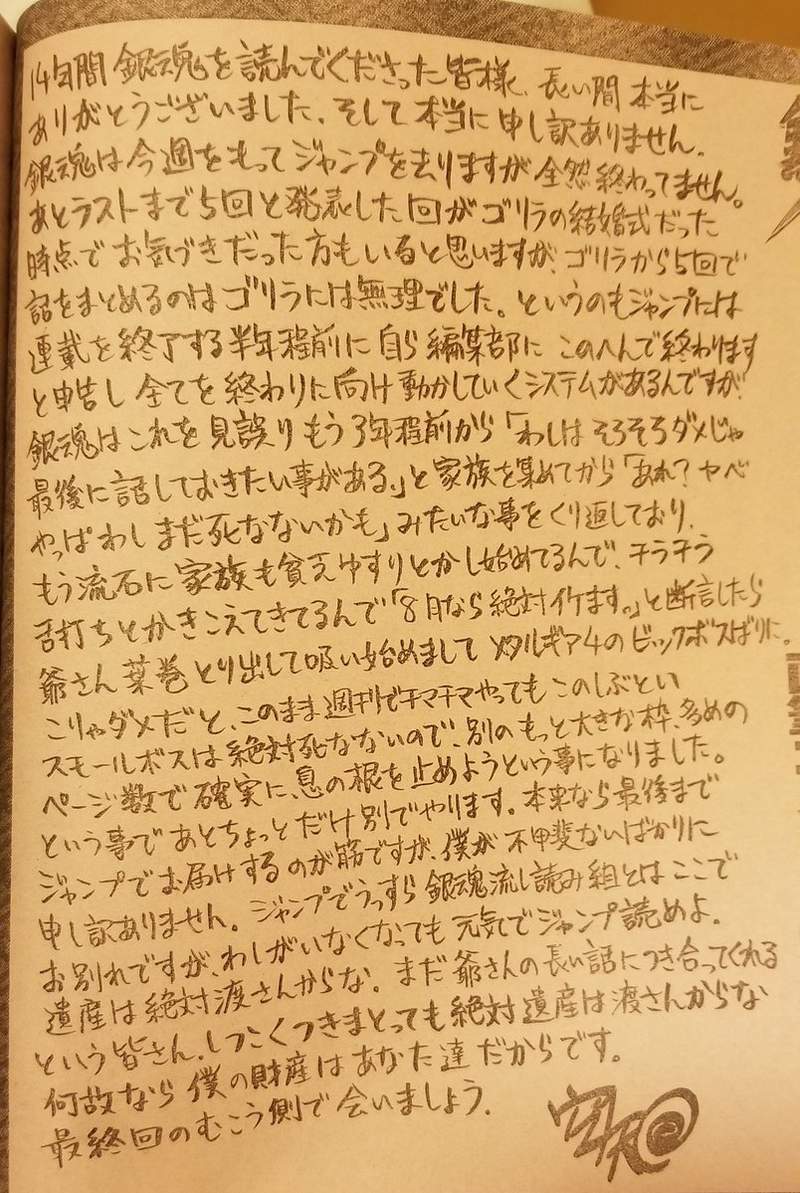 14年間 銀魂を読んでくださった皆様、長い間 本当に
ありがとうございました。そして本当に申し訳ありません。
銀魂は今週をもってジャンプを去りますが全然終わってません。
あとラストまで5回と発表した回がゴリラの結婚式だった
時点でお気づきだった方もいると思いますが、ゴリラから5回で
話をまとめるのはゴリラには無理でした。というのもジャンプには
連載を終了する半年程前に自ら編集部にこのへんで終わります
と申告し全てを終わりに向け動かしていくシステムがあるんですが
銀魂はこれを見誤りもう3年程前から「わしはそろそろダメじゃ
最後に話しておきたい事がある。」と家族を集めてから「あれ?ヤベ
やっぱわしまだ死なないかも」みたいな事をくり返しており、
もう流石に家族も貧乏ゆすりとかし始めてるんで、チラチラ
舌打ちとかきこえてきてるんで「8月なら絶対イケます。」と断言したら
爺さん葉巻とり出して吸い始めまして メタルギア4のビックボスばりに。
こりゃダメだと、このまま週刊でチマチマやってもこのしぶとい
スモールボスは絶対死なないので、別のもっと大きな枠、多めの
ページ数で確実に、息の根を止めようという事になりました。
という事であとちょっとだけ別でやります。本来なら最後まで
ジャンプでお届けするのが筋ですが、僕が不甲斐ないばかりに
申し訳ありません。ジャンプでうっすら銀魂流し読み組とはここで
お別れですが、わしがいなくなっても元気でジャンプ読めよ。
遺産は絶対渡さんからな。まだ爺さんの長い話につき合ってくれる
という皆さん、しつこくつきまとっても絶対遺産は渡さんからな
何故なら僕の財産はあなた達だからです。
最終回のむこう側で会いましょう。